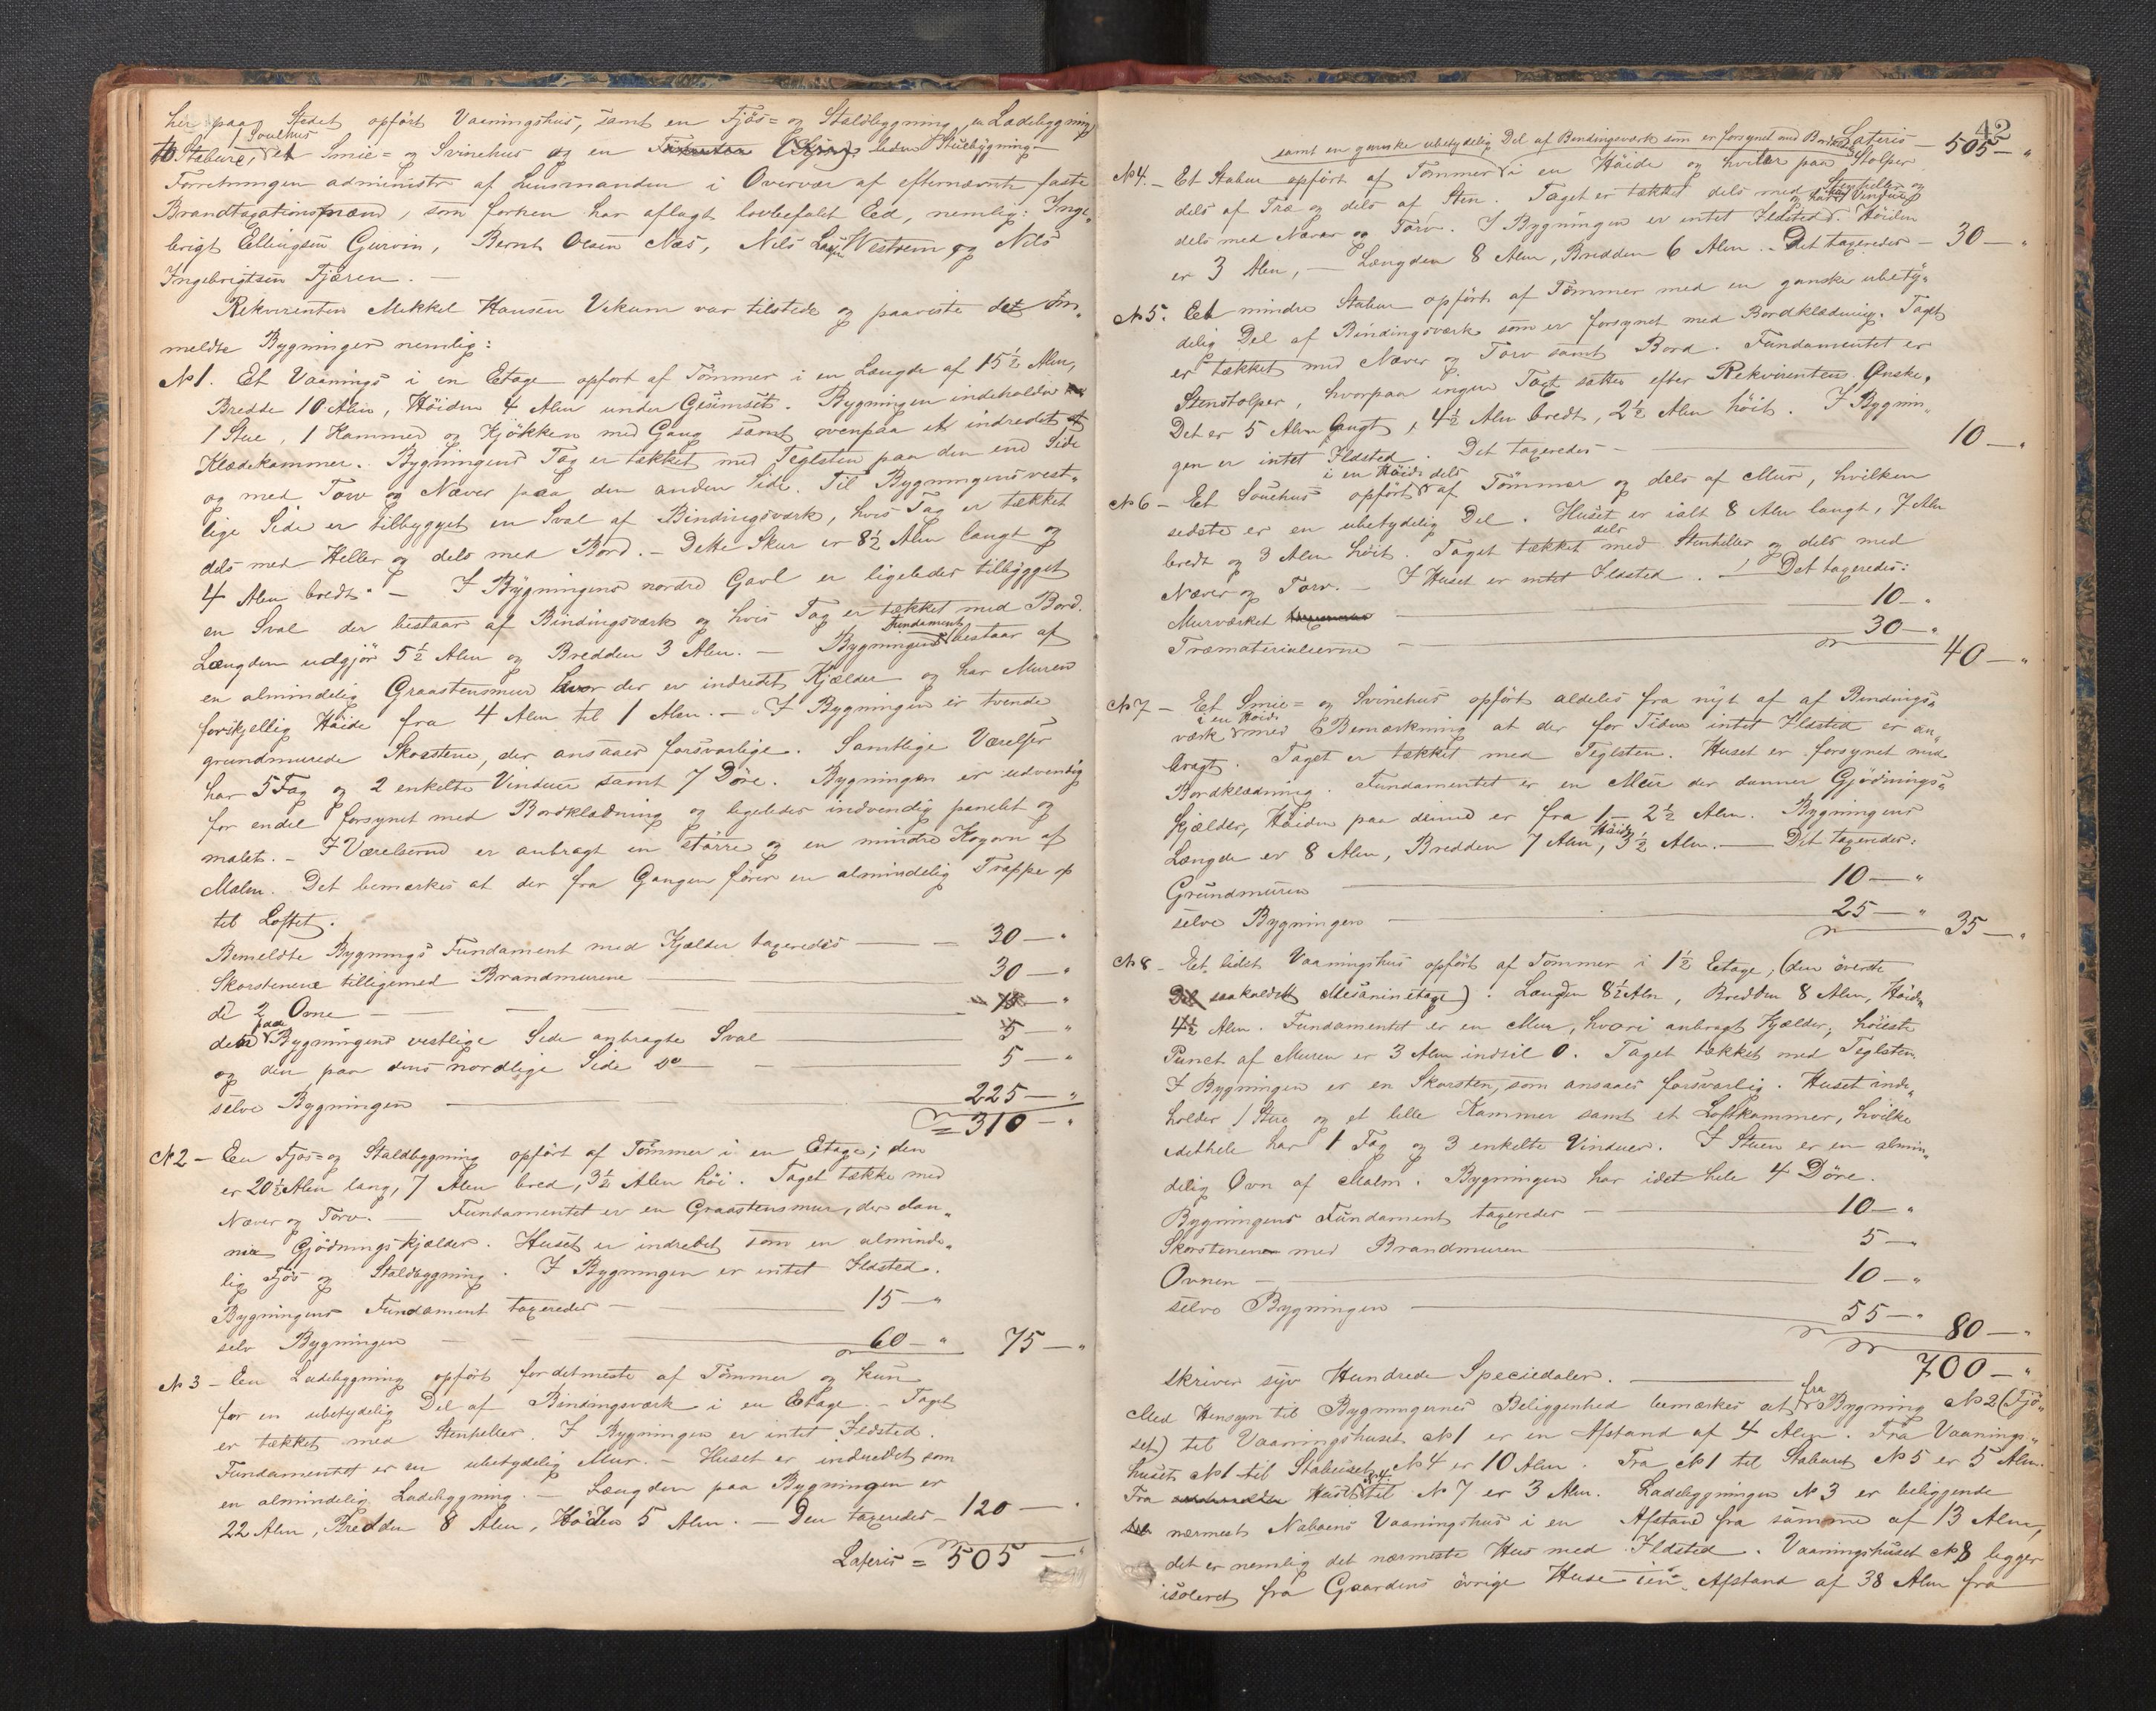 her paa Stedet opført Vaaningshus, samt en Fjøs= og Staldbygning, en Ladebygning
to Stabure, 1 Souehus et Smie= og Svinehus og en liden Stuebygning.
Forretningen administr af Lensmanden i Overvær af efternævnte faste
Brandtaxationsmænd, som forhen har aflagt lovbefalet Eed, nemlig: Inge„
brigt Ellingsen Gurvin, Bernt Olsen Næs, Nils Westrem og Nils
Ingebrigtsen Fjæren. —
Rekvirenten Mikkel Hansen Vikum var tilstede og paaviste det an„
meldte Bygninger nemlig:
No 1. Et Vaanings i en Etage opført af Tømmer i en Længde af 15½ Alen,
Bredde 10 Alen, Høiden 4 Alen under Gesimset. Bygningen indeholder
1 Stue, 1 Kammer og Kjøkken med Gang samt ovenpaa et indredet
Klædekammer. Bygningens Tag er tækket med Teglsten paa den ene Side
og med Torv og Næver paa den anden Side. Til Bygningens vest„
lige Side er tilbygget en Sval af Bindingsværk, hvis Tag er tækket
dels med Heller og dels med Bord. — Dette Skur er 8½ Alen langt og
4 Alen bredt. — I Bygningens nordre Gavl er ligeledes tilbygget
en Sval der bestaar af Bindingsværk og hvis Tag er tækket med Bord.
Længden udgjør 5½ Alen og Bredden 3 Alen. — Bygningens Fundament bestaar af
en almindelig Graastensmur hvor der er indredet Kjælder og har Muren
forskjellig Høide fra 4 Alen til 1 Alen. — I Bygningen er tvende
grundmurede Skorstene, der ansaaes forsvarlige. Samtlige Værelser
har 5 Fag og 2 enkelte Vinduer samt 7 Døre. Bygningen er udvendig
for endel forsynet med Bordklædning og ligeledes indvendig panelet og
malet. — I Værelserne er anbragt en større og en mindre Kogovn af
Malm. Det bemærkes at der fra Gangen fører en almindelig Trappe op
til Loftet.
Bemeldte Bygnings Fundament med Kjælder taxeredes — 30 — "
Skorstenene tilligemed Brandmurene — 30 — "
de 2 Ovne — — — — — "
den paa Bygningens vestlige Side anbragte Sval — 5 — "
og den paa dens nordlige Side do — 5 — "
selve Bygningen — 225 — "
= 310 — "
No 2 — En Fjøs= og Staldbygning opført af Tømmer i en Etage; den
er 20½ Alen lang, 7 Alen bred, 3½ Alen høi. Taget tække med
Næver og Torv. — Fundamentet er en Graastensmur, der dan„
ner Gjødningskjælder. Huset er indredet som en alminde„
lig Fjøs og Staldbygning. I Bygningen er intet Ildsted.
Bygningens Fundament taxeredes — 15 — "
selv Bygningen — — 60 — " 75 — "
No 3 — En Ladebygning opført fordetmeste af Tømmer og kun
for en ubetydelig Del af Bindingsværk i en Etage. — Taget
er tækket med Stenheller. I Bygningen er intet Ildsted.
Fundamentet er en ubetydelig Mur. — Huset er indredet som
en almindelig Ladebygning. — Længden paa Bygningen er
22 Alen, Bredden 8 Alen, Høiden 5 Alen. — Den taxeredes — 120 — "
Lateris = 505 — "
42
Lateris — 505 — "
samt en ganske ubetydelig Del af Bindingsværk som er forsynet med
No 4. — Et Stabur opført af Tømmer i en Høide og hviler paa Stolper
dels af Træ og dels af Sten. Taget er tækket dels med Stenheller og
dels med Næver og Torv. I Bygningen er intet Ildsted. Høiden
er 3 Alen, — Længden 8 Alen, Bredden 6 Alen. — Det taxeredes — 30 — "
No 5. Et mindre Stabur opført af Tømmer med en ganske ubety„
delig Del af Bindingsværk som er forsynet med Bordklædning. Taget
er tækket med Næver og Torv samt Bord. Fundamentet er
Stenstolper, hvorpaa ingen Taxt sattes efter Rekvirentens Ønske.
Det er 5 Alen langt, 4½ Alen bredt, 2½ Alen høit. I Bygnin„
gen er intet Ildsted. Det taxeredes — 10 — "
No 6 — Et Souehus opført i en Høide dels af Tømmer og dels af Mur, hvilken
sidste er en ubetydelig Del. Huset er ialt 8 Alen langt, 7 Alen
bredt og 3 Alen høit. Taget tækket dels med Stenheller og dels med
Næver og Torv. — I Huset er intet Ildsted. — Det taxeredes:
Murværket — 10 — "
Træmaterialierne — 30 — "
40 — "
No 7 — Et Smie= og Svinehus opført aldeles fra nyt af af Bindings„
værk i en Høide med Bemærkning at der for Tiden intet Ildsted er an„
bragt. Taget er tækket med Teglsten. Huset er forsynet med
Bordklædning. Fundamentet er en Mur der danner Gjødnings„
kjælder, Høiden paa denne er fra 1 — 2½ Alen. Bygningens
Længde er 8 Alen, Bredden 7 Alen, Høide 3½ Alen. — Det taxeredes:
Grundmuren — 10 — "
selve Bygningen — 25 — " 35 — "
No 8 — Et lidet Vaaningshus opført af Tømmer i 1½ Etage, (den øverste
saakaldet Mesaninetage). Længden 8½ Aln, Bredden 8 Alen, Høiden
4½ Alen. Fundamentet er en Mur, hvori anbragt Kjælder, høieste
Punct af Muren er 3 Alen indtil 0. Taget tækket med Teglsten.
I Bygningen er en Skorsten, som ansaaes forsvarlig. Huset inde„
holder 1 Stue og et lille Kammer samt et Loftkammer, hvilke
idethele har 1 Fag og 3 enkelte Vinduer. I Stuen er en almin„
delig Ovn af Malm. Bygningen har idet hele 4 Døre.
Bygningens Fundament taxeredes — 10 — "
Skorstenen med Brandmuren — 5 — "
Ovnen — 10 — "
selve Bygningen — 55 — " 80 — "
700 — "
skriver syv Hundrede Speciedaler. —
Med Hensyn til Bygningernes Beliggenhed bemærkes at fra Bygning No 2 (Fjø„
set) til Vaaningshuset No 1 er en Afstand af 4 Alen. Fra Vaanings„
huset No 1 til Staburet No 4 er 10 Alen. Fra No 1 til Staburet No 5 er 5 Alen.
Fra Huset No 4. til No 7 er 3 Alen. Ladebygningen No 3 er beliggende
nærmest Naboens Vaaningshus i en Afstand fra samme af 13 Alen,
det er nemlig det nærmeste Hus med Ildsted. Vaaningshuset No 8 ligger
isoleret fra Gaardens øvrige Huse i en Afstand af 38 Alen fra